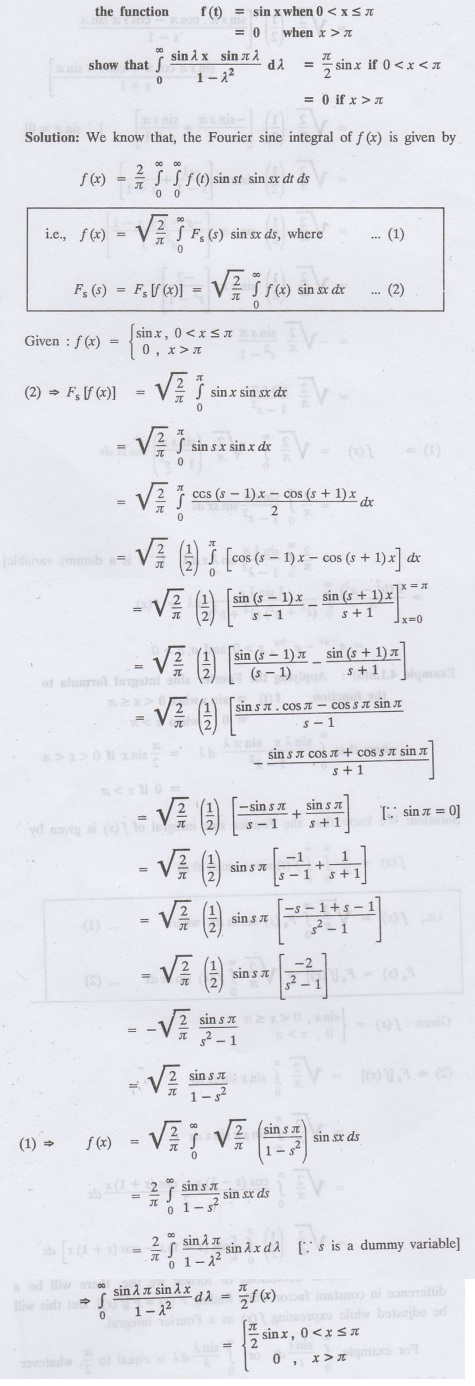 the function f (t) = sin x when 0 < x ≤ π
= 0 when x > π
show that ∫₀^∞ (sin λ x sin π λ)/(1 − λ²) d λ = π/2 sin x if 0 < x < π
= 0 if x > π
Solution: We know that, the Fourier sine integral of f (x) is given by
f (x) = 2/π ∫₀^∞ ∫₀^∞ f (t) sin st sin sx dt ds
i.e., f (x) = √(2/π) ∫₀^∞ Fₛ (s) sin sx ds, where ... (1)
Fₛ (s) = Fₛ [f (x)] = √(2/π) ∫₀^∞ f (x) sin sx dx ... (2)
Given : f (x) = { sin x, 0 < x ≤ π
0 , x > π
(2) ⇒ Fₛ [f (x)] = √(2/π) ∫₀^π sin x sin sx dx
= √(2/π) ∫₀^π sin s x sin x dx
= √(2/π) ∫₀^π (cos (s − 1) x − cos (s + 1) x)/2 dx
= √(2/π) (1/2) ∫₀^π [cos (s − 1) x − cos (s + 1) x] dx
= √(2/π) (1/2) [sin (s − 1) x/(s − 1) − sin (s + 1) x/(s + 1)]_{x=0}^{x = π}
= √(2/π) (1/2) [sin (s − 1) π/(s − 1) − sin (s + 1) π/(s + 1)]
= √(2/π) (1/2) [(sin s π . cos π − cos s π sin π)/(s − 1)
− (sin s π cos π + cos s π sin π)/(s + 1)]
= √(2/π) (1/2) [−sin s π/(s − 1) + sin s π/(s + 1)] [∵ sin π = 0]
= √(2/π) (1/2) sin s π [−1/(s − 1) + 1/(s + 1)]
= √(2/π) (1/2) sin s π [(−s − 1 + s − 1)/(s² − 1)]
= √(2/π) (1/2) sin s π [−2/(s² − 1)]
= −√(2/π) sin s π/(s² − 1)
= √(2/π) sin s π/(1 − s²)
(1) ⇒ f (x) = √(2/π) ∫₀^∞ √(2/π) (sin s π/(1 − s²)) sin sx ds
= 2/π ∫₀^∞ sin s π/(1 − s²) sin sx ds
= 2/π ∫₀^∞ sin λ π/(1 − λ²) sin λ x d λ [∵ s is a dummy variable]
⇒ ∫₀^∞ (sin λ π sin λ x)/(1 − λ²) d λ = π/2 f (x)
= { π/2 sin x, 0 < x ≤ π
0 , x > π